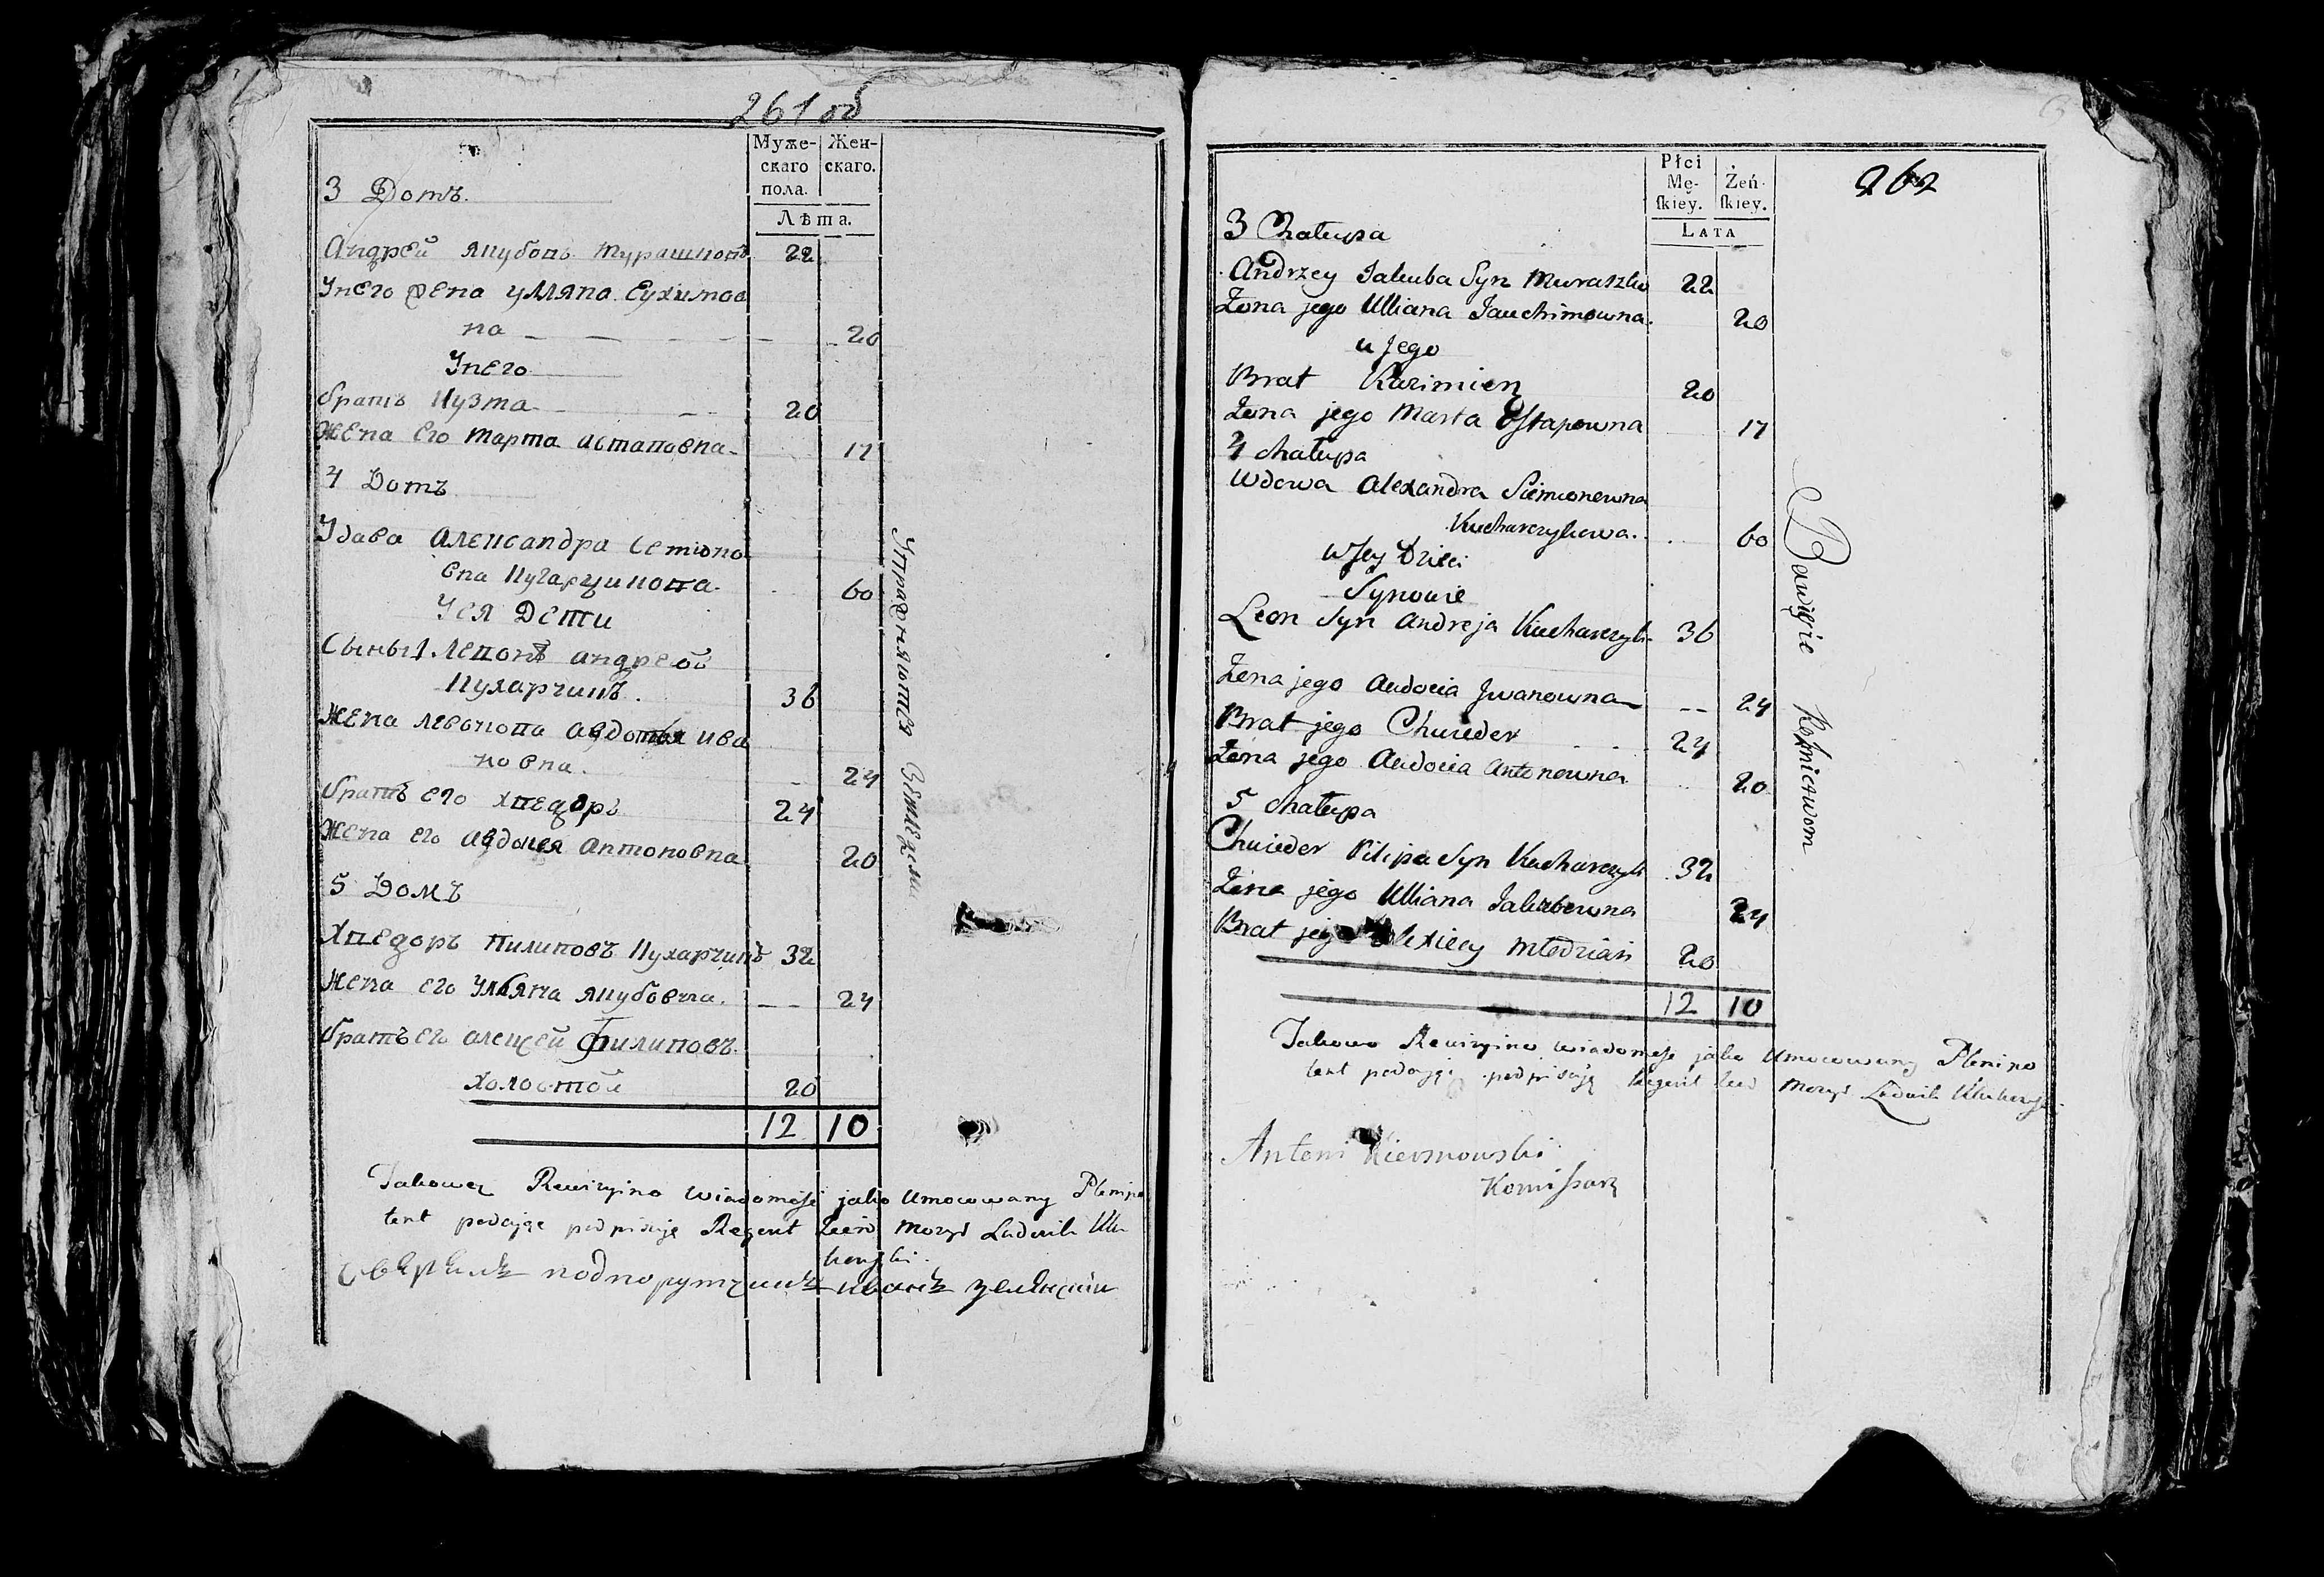 261 об
Муже- Жен-
скаго скаго.
пола.
Лѣта.
3 Домъ.
Андрей Якубовъ Мурашковъ 22
Унего жена Улляна Еухимов
на — — — — — 20
Унего
братъ Кузма — — — 20
жена его Марта Астаповна — 17
4 Домъ
Удава Александра Семіоно
вна Кухарчикова 60
Уея Дети
Сыны 1. Левонъ Андреевъ
Кухарчикъ . 36
жена Левонова Авдотья Ива
новна. — 24
братъ его Хведоръ 24
жена его Авдоцея Антоновна 20
5 Домъ
Хведоръ Пилиповъ Кухарчикъ 32
жена его Ульяна Якубовна. — — 24
братъ его Алексей Филиповъ
холостой 20
12 10
Упражняютця Земледели
Takoweż Rewizyine Wiadomości jako Umocowany Plenipo
tent podając podpisuję Regent Ziem Mozyr Ludwik
подпорутчикъ Иванъ
262
Płci
Mę- Żeń-
ſkiey. ſkiey.
LATA
3 Chałupa
Andrzey Jakuba Syn Muraszko 22
Żona jego Ulliana Jauchimowna. 20
u Jego
Brat Kazimierz 20
Żona jego Marta Ostapowna 17
4 chałupa
Wdowa Alexandra Siemionowna
Kucharczykowa. . . 60
u Jey Dzieci
Synowie
Leon Syn Andreja Kucharczyk 36
Żona jego Audocia Jwanowna — — 24
Brat jego Chwieder . . 24
Żona jego Audocia Antonowna 20
5 chałupa
Chwieder Pilipa Syn Kucharczyk 32
Żona jego Ulliana Jakubowna 24
Brat jego Alexiey Młodzian 20
12 10
Bawięcie Rolnictwom
Takowe Rewizyine wiadomości jako Umocowany Plenipo
tent podając podpisuję Regent Ziem Mozyr Ludwik
Antoni Kiersnowski
Komiſsarz